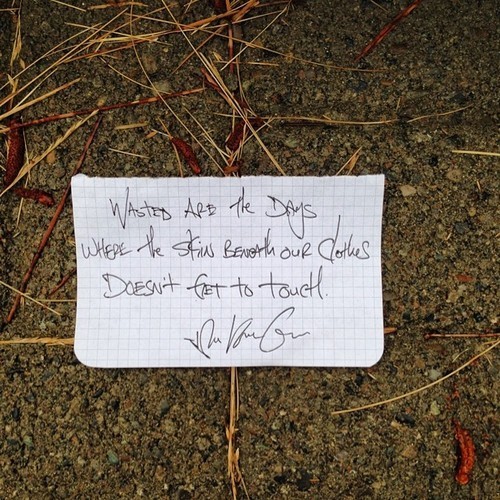 Wasted Are the Days
Where the Skin Beneath our Clothes
Doesn't Get to Touch.